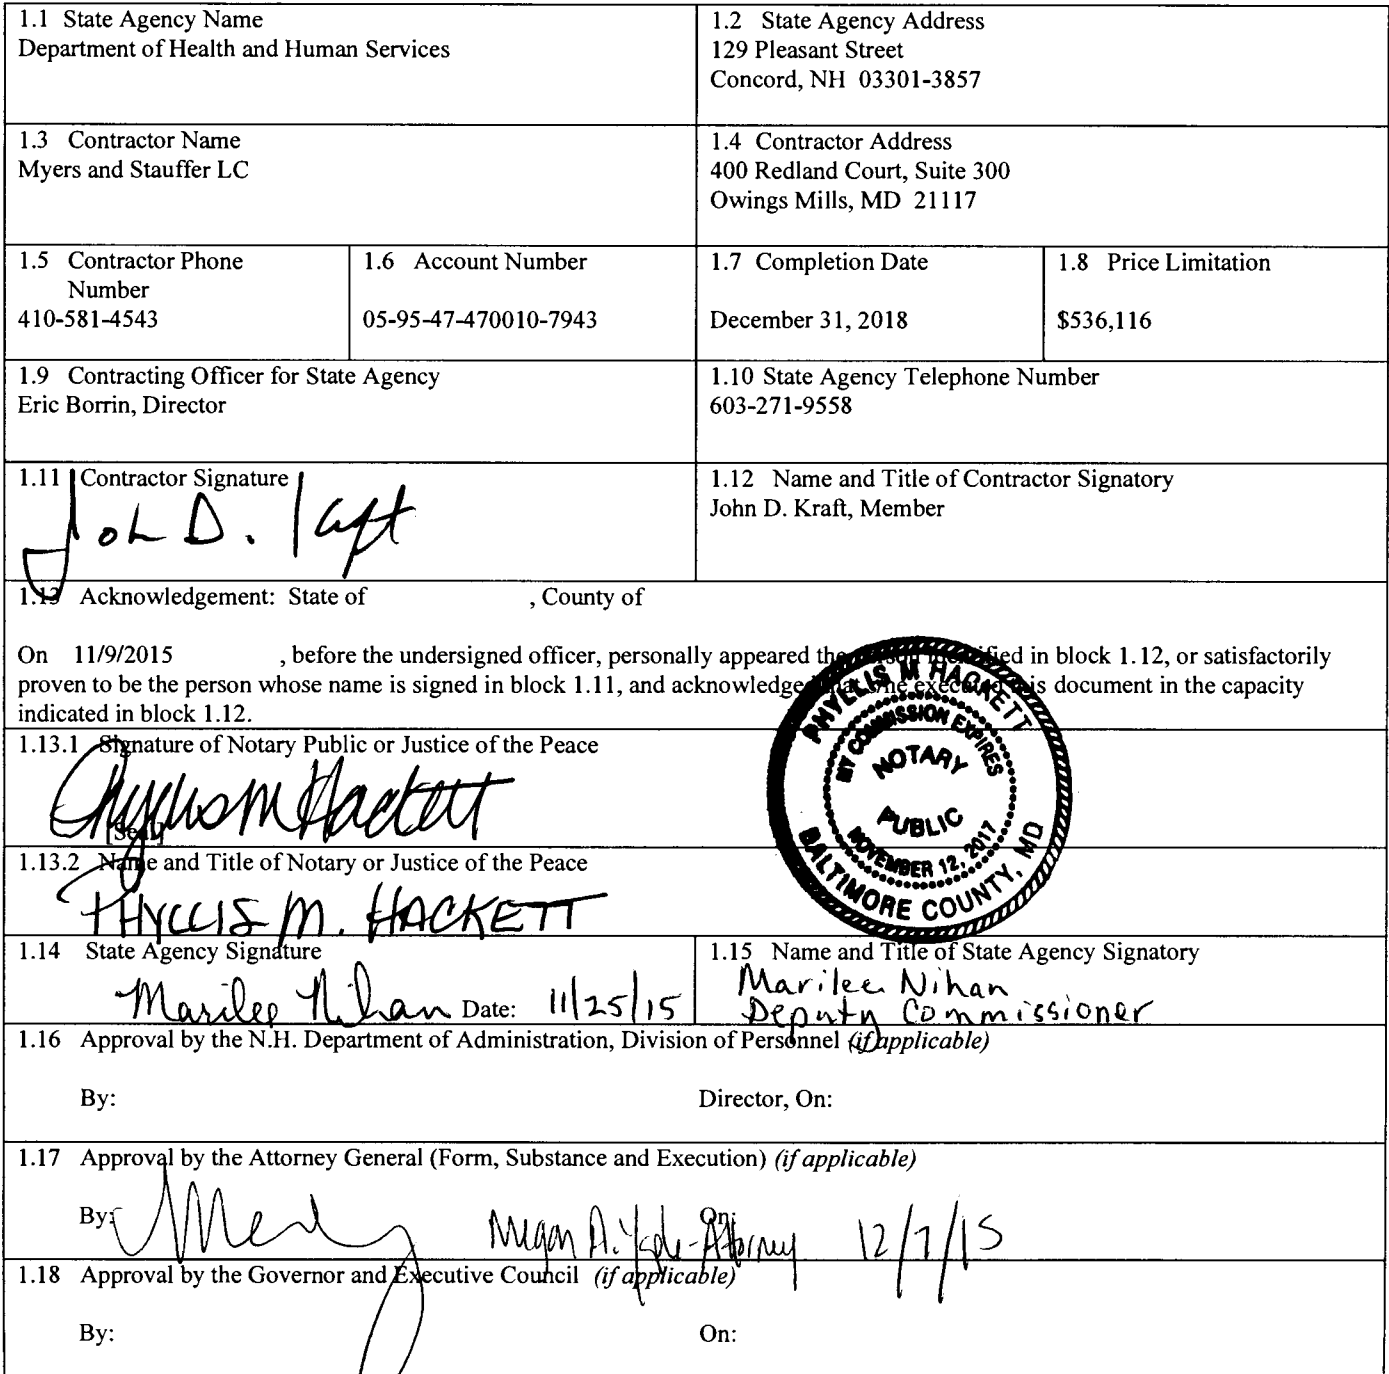 1.1 State Agency Name
Department of Health and Human Services
1.2 State Agency Address
129 Pleasant Street
Concord, NH 03301-3857
1.3 Contractor Name
Myers and Stauffer LC
1.4 Contractor Address
400 Redland Court, Suite 300
Owings Mills, MD 21117
1.5 Contractor Phone
Number
410-581-4543
1.6 Account Number
05-95-47-470010-7943
1.7 Completion Date
December 31, 2018
1.8 Price Limitation
$536,116
1.9 Contracting Officer for State Agency
Eric Borrin, Director
1.10 State Agency Telephone Number
603-271-9558
1.11 Contractor Signature
John D. Kraft
1.12 Name and Title of Contractor Signatory
John D. Kraft, Member
1.13 Acknowledgement: State of , County of
On 11/9/2015 , before the undersigned officer, personally appeared the person identified in block 1.12, or satisfactorily
proven to be the person whose name is signed in block 1.11, and acknowledged that s/he executed this document in the capacity
indicated in block 1.12.
1.13.1 Signature of Notary Public or Justice of the Peace
Phyllis M Hackett
[Seal]
PHYLLIS M HACKETT
MY COMMISSION EXPIRES
NOTARY
PUBLIC
NOVEMBER 12, 2017
BALTIMORE COUNTY, MD
1.13.2 Name and Title of Notary or Justice of the Peace
PHYLLIS M. HACKETT
1.14 State Agency Signature
Marilee Nihan Date: 11/25/15
1.15 Name and Title of State Agency Signatory
Marilee Nihan
Deputy Commissioner
1.16 Approval by the N.H. Department of Administration, Division of Personnel (if applicable)
By: Director, On:
1.17 Approval by the Attorney General (Form, Substance and Execution) (if applicable)
By: Megan A. - Attorney On: 12/7/15
1.18 Approval by the Governor and Executive Council (if applicable)
By: On: